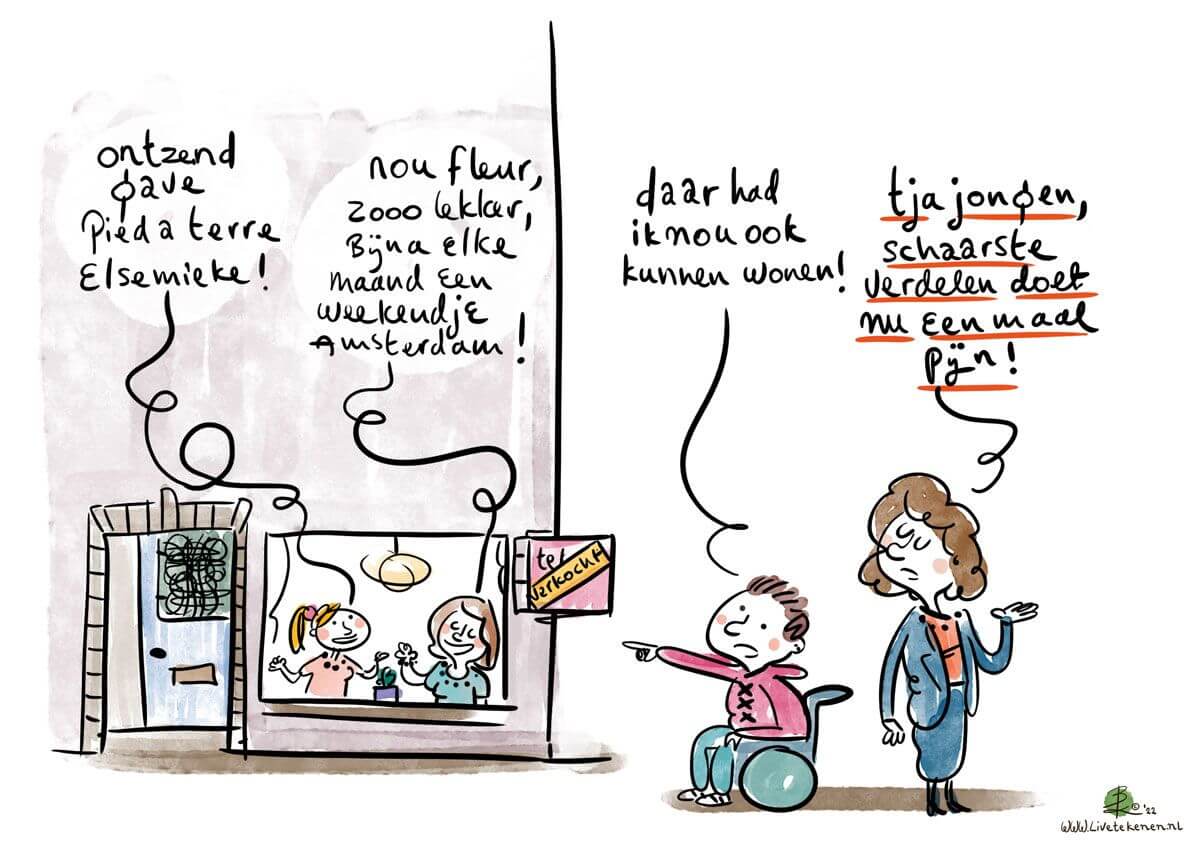 ontzend
gave
Pied a terre
Elsemieke!
nou fleur,
zooo lekker,
Bijna elke
maand een
weekendje
Amsterdam!
daar had
ik nou ook
kunnen wonen!
tja jongen,
schaarste
verdelen doet
nu eenmaal
pijn!
te
verkocht
© '22
www.Livetekenen.nl